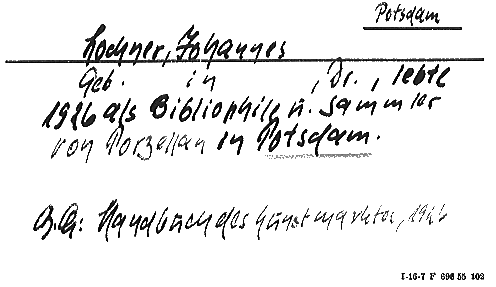 Potsdam
Lochner, Johannes
Geb. in , Dr., lebte
1926 als Bibliophile u. Sammler
von Porzellan in Potsdam.
Handbuch des Kunstmarktes, 1926
I-16-7 F 696 55 102